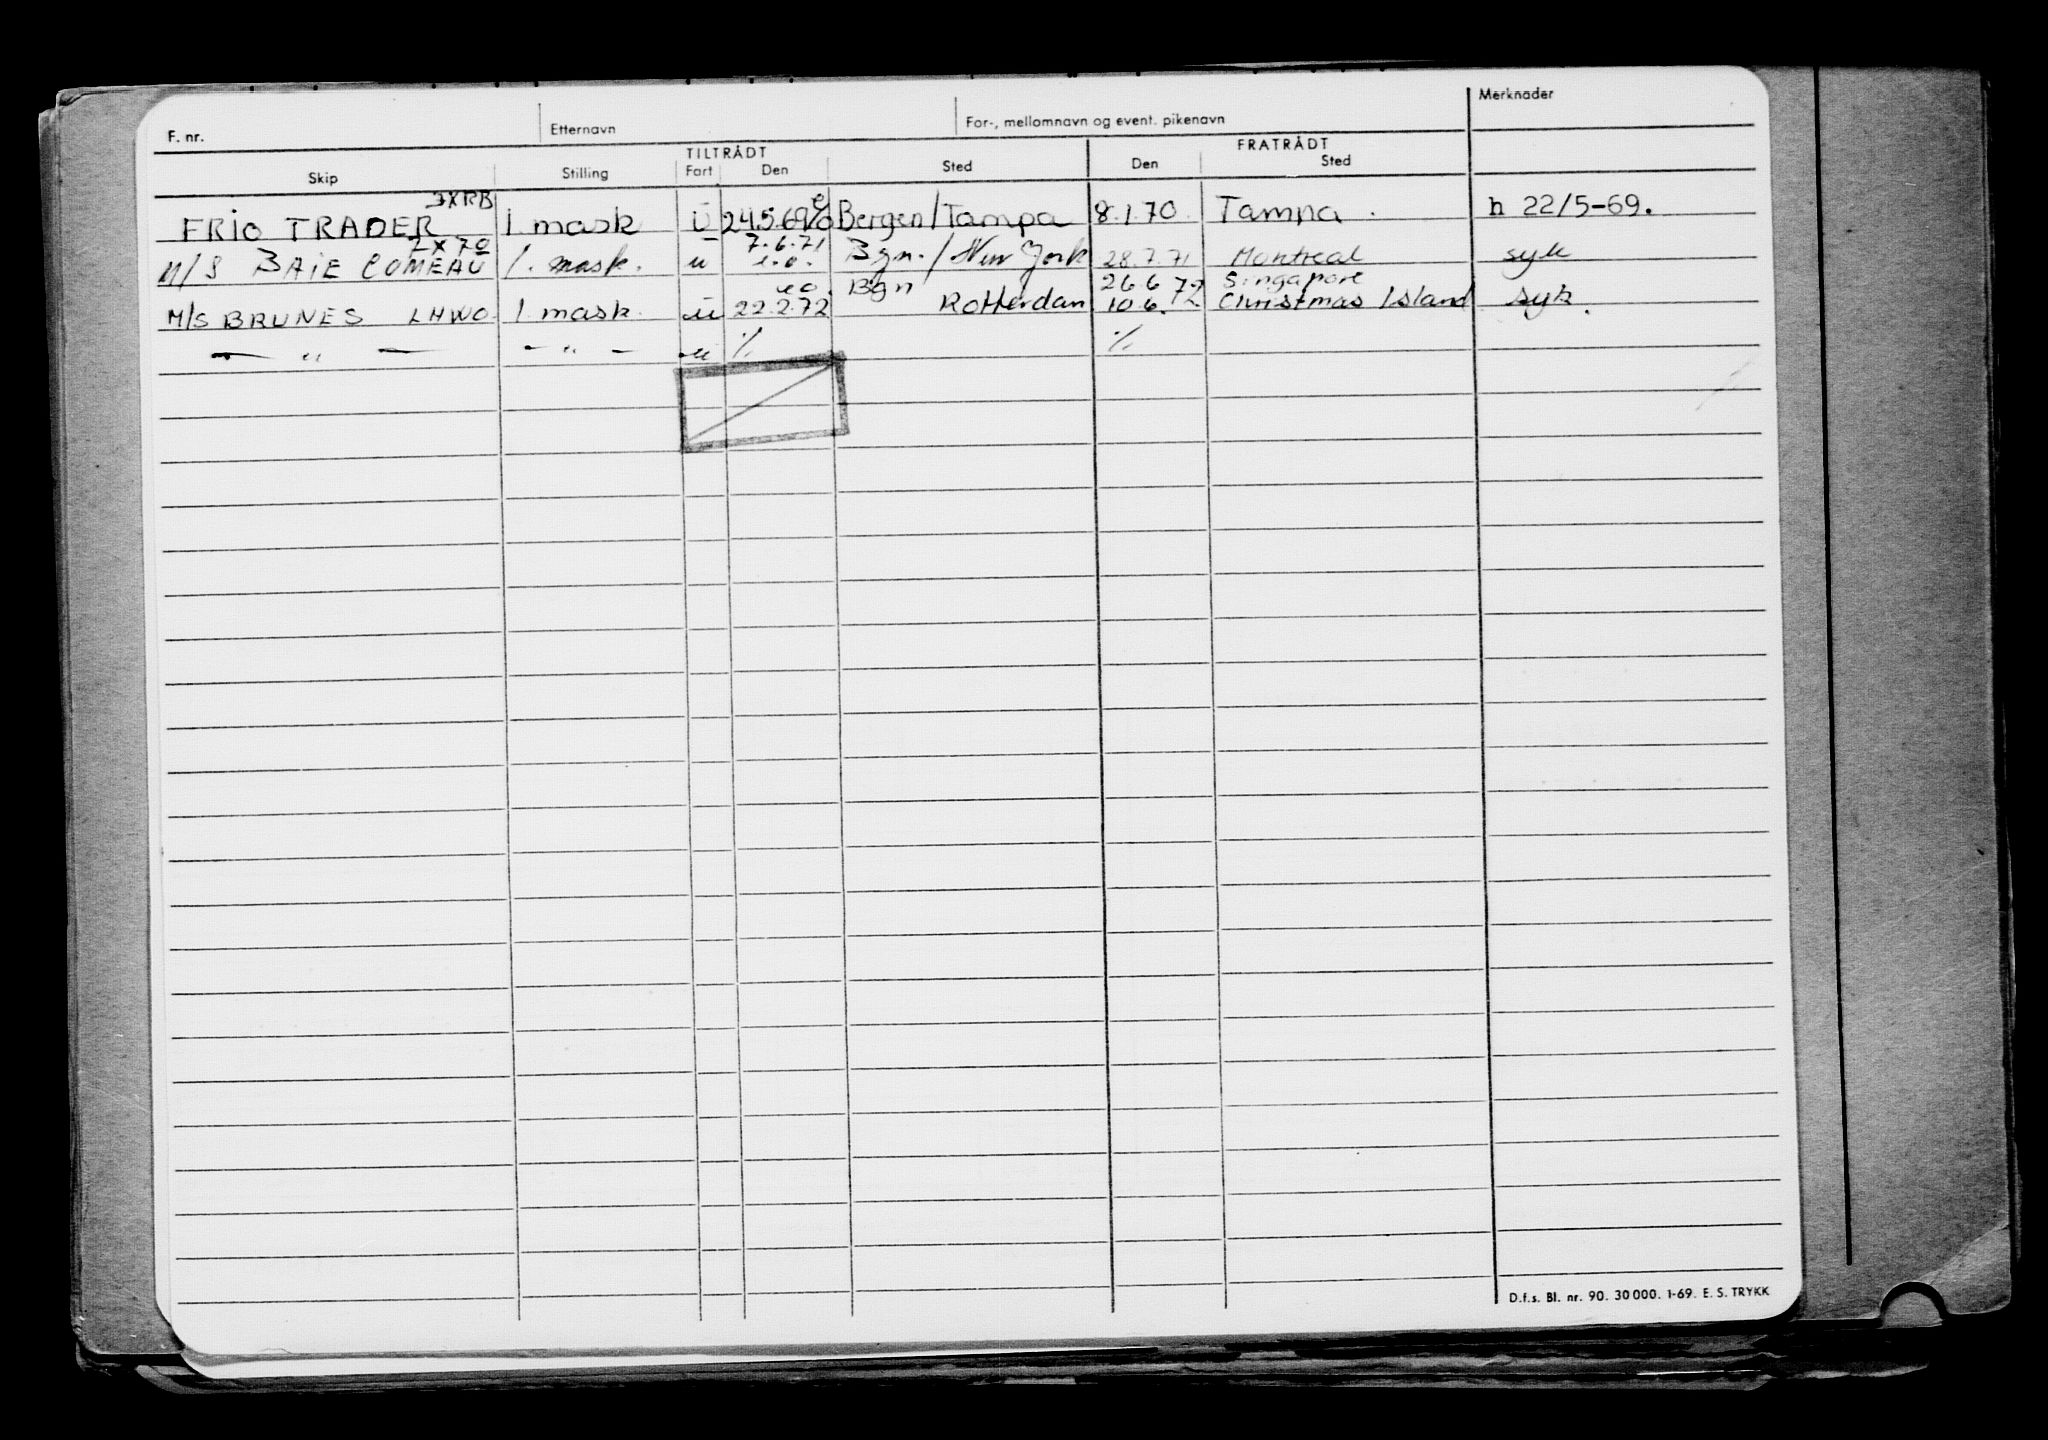 F. nr. Etternavn For-, mellomnavn og event. pikenavn Merknader
TILTRÅDT FRATRÅDT
Skip Stilling Fart Den Sted Den Sted
JXRB
FRIO TRADER 1 mask Ü 24.5.69 Bergen/Tampa 8.1.70 Tampa. h 22/5-69.
LX70 7.6.71
M/S BAIE COMEAU 1. mask. u e.o. Bgn./New York 28.7.71 Montreal syk
e.o. Bgn 26.6.72 Singapore
M/S BRUNES LHWO 1 mask. u 22.2.72 Rotterdam 10.6. Christmas Island syk.
— " — — " — u ./. ./.
D.f.s. Bl. nr. 90. 30 000. 1-69. E. S. TRYKK